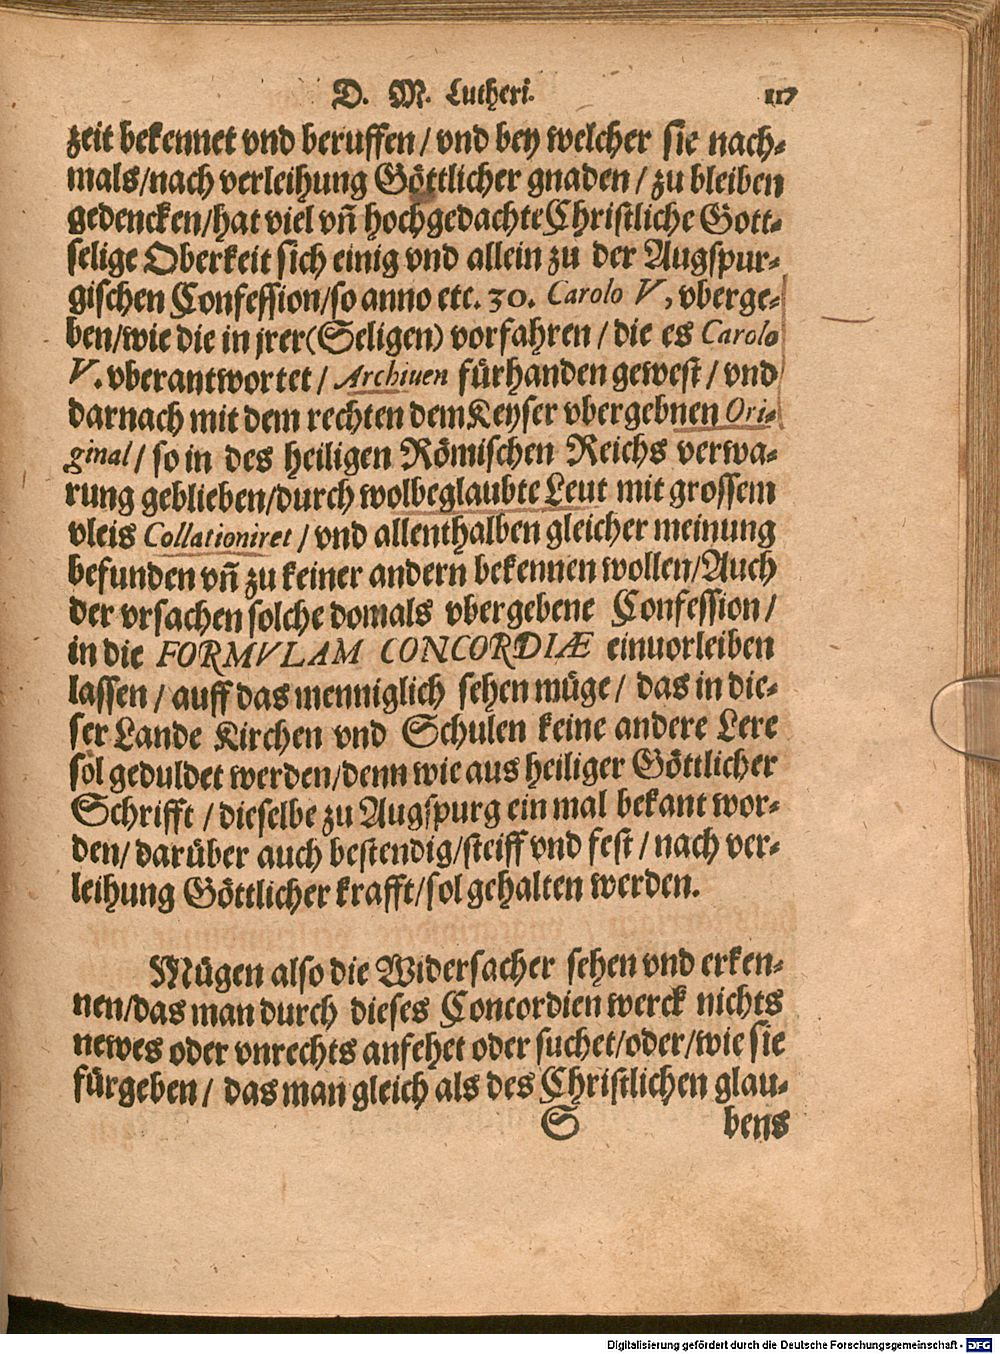 D. M. Lutheri. 117
zeit bekennet vnd beruffen / vnd bey welcher sie nach-
mals/nach verleihung Göttlicher gnaden / zu bleiben
gedencken/hat viel vñ hochgedachte Christliche Gott-
selige Oberkeit sich einig vnd allein zu der Augspur-
gischen Confession/so anno etc. 30. Carolo V, vberge-
ben/wie die in jrer (Seligen) vorfahren / die es Carolo
V. vberantwortet / Archiuen fürhanden gewest / vnd
darnach mit dem rechten dem Keyser vbergebnen Ori-
ginal / so in des heiligen Römischen Reichs verwa-
rung geblieben/durch wolbeglaubte Leut mit grossem
vleis Collationiret / vnd allenthalben gleicher meinung
befunden vñ zu keiner andern bekennen wollen/Auch
der vrsachen solche domals vbergebene Confession /
in die FORMVLAM CONCORDIÆ einuorleiben
lassen / auff das menniglich sehen müge / das in die-
ser Lande Kirchen vnd Schulen keine andere Lere
sol geduldet werden/denn wie aus heiliger Göttlicher
Schrifft / dieselbe zu Augspurg ein mal bekant wor-
den/ darüber auch bestendig/steiff vnd fest / nach ver-
leihung Göttlicher krafft/sol gehalten werden.
Mügen also die Widersacher sehen vnd erken-
nen/das man durch dieses Concordien werck nichts
newes oder vnrechts anfehet oder suchet/oder/wie sie
fürgeben / das man gleich als des Christlichen glau-
S bens
Digitalisierung gefördert durch die Deutsche Forschungsgemeinschaft - DFG